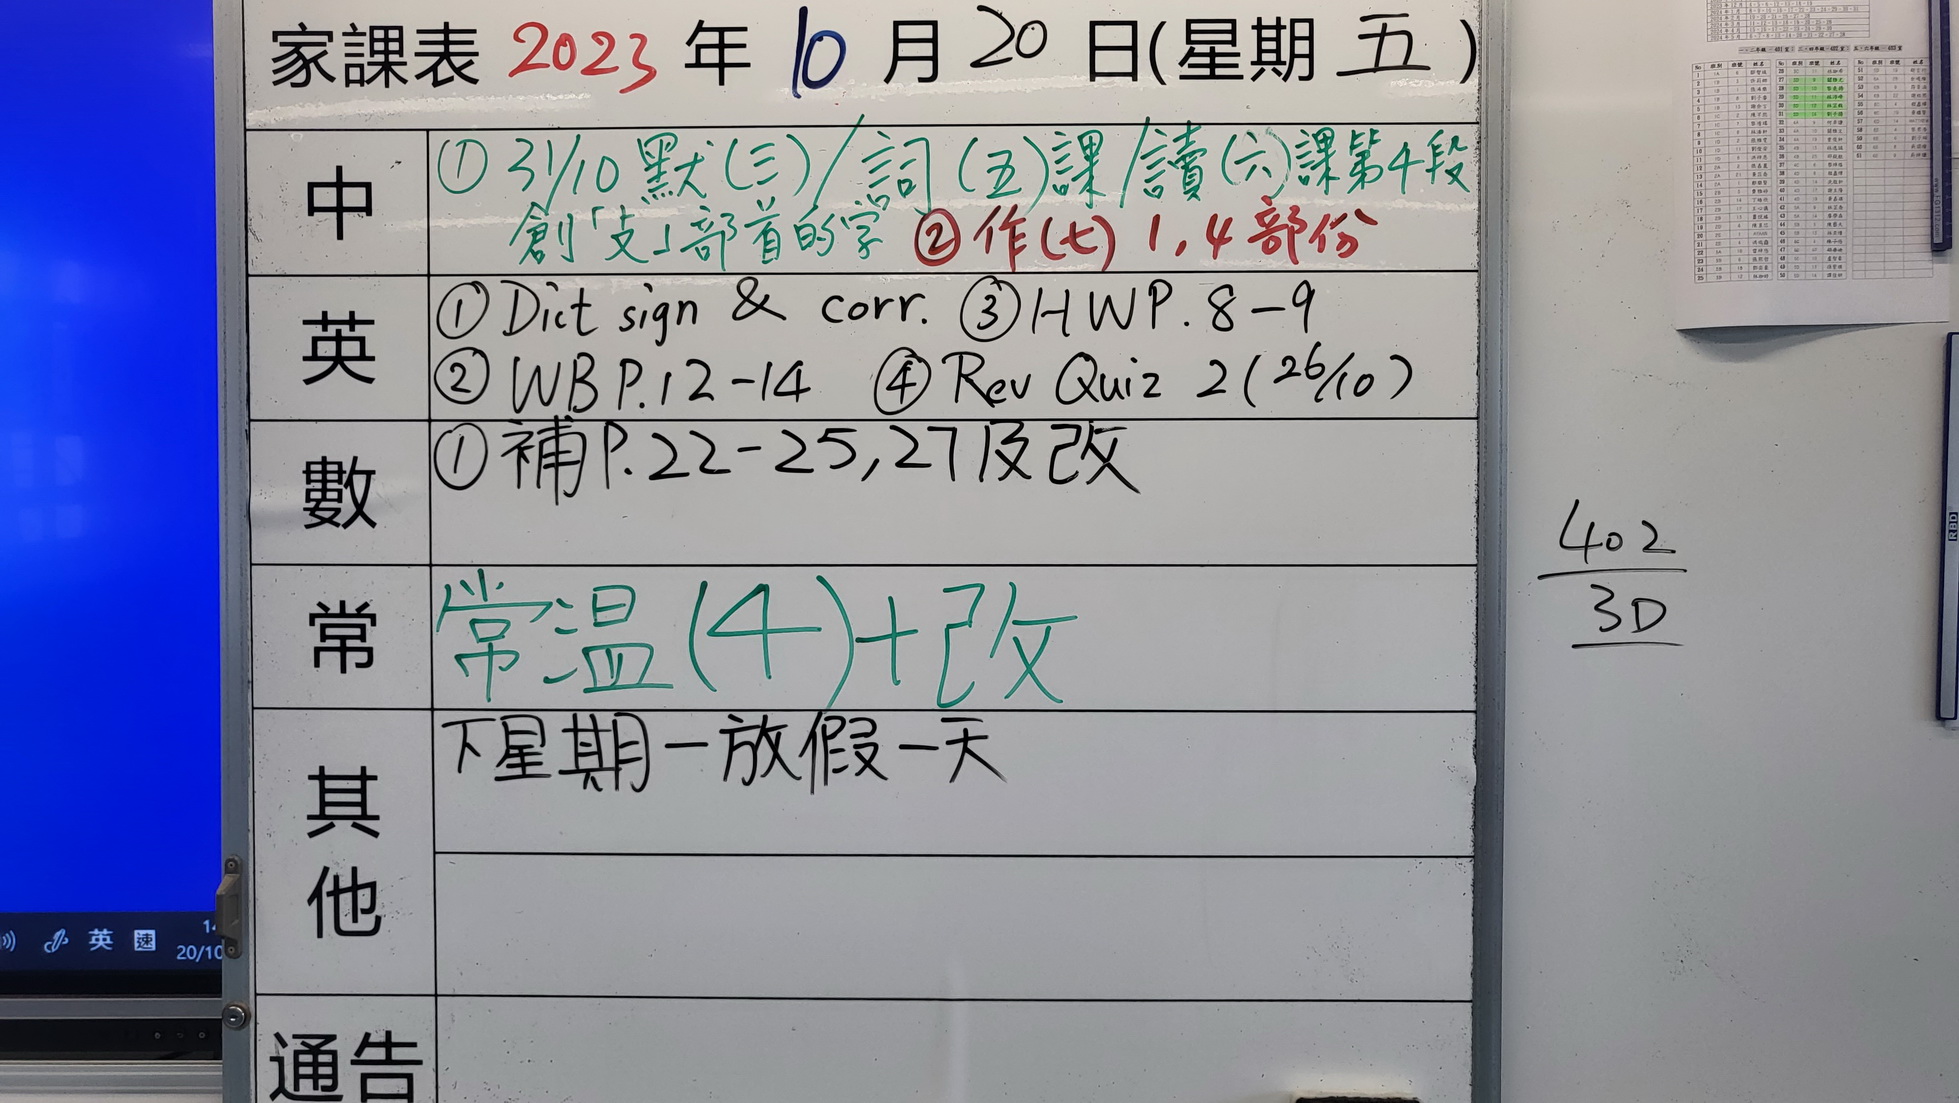 家課表 2023 年 10 月 20 日(星期 五 )
中
① 31/10 默(三)/詞(五)課/讀(六)課第4段
創「支」部首的字 ② 作(七) 1,4 部份
英
① Dict sign & corr. ③ HWP. 8-9
② WB P.12-14 ④ Rev Quiz 2 (26/10)
數
① 補P.22-25,27及改
常
常温(4)+改
其他
下星期一放假一天
通告
402
3D
英 速
20/10
RBD